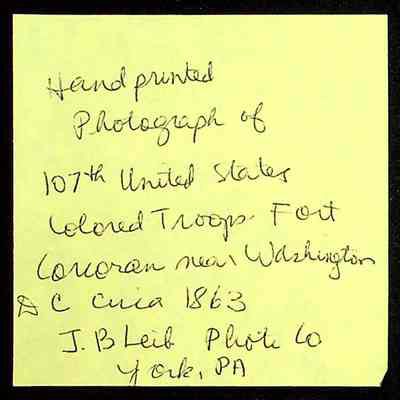 Hand printed
Photograph of
107th United States
Colored Troops. Fort
Corcoran near Washington
D C circa 1863
J. B Leib Photo Co
York, PA